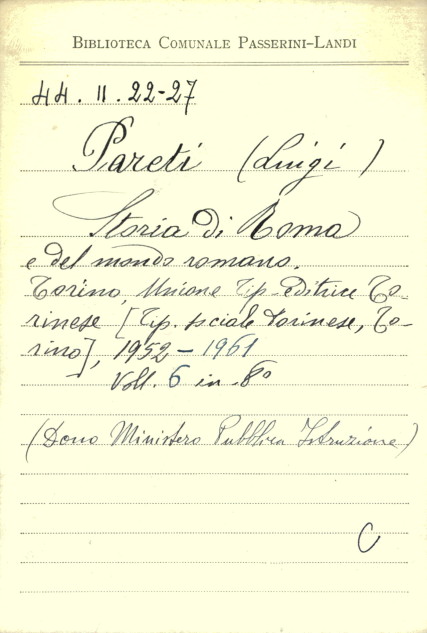 BIBLIOTECA COMUNALE PASSERINI-LANDI
44. II. 22-27
Pareti (Luigi)
Storia di Roma
e del mondo romano.
Torino, Unione Tip. editrice To-
rinese [Tip. sociale torinese, To-
rino], 1952-1961
Voll. 6 in-8º
(Dono Ministero Pubblica Istruzione)
C